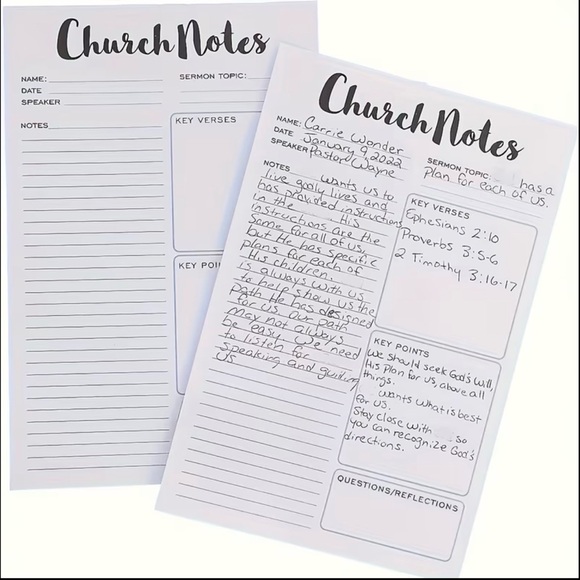 Church Notes
NAME:
DATE
SPEAKER
SERMON TOPIC:
NOTES
KEY VERSES
KEY POI
Church Notes
NAME: Carrie Wonder
DATE January 9, 2022
SPEAKER Pastor Wayne
SERMON TOPIC: has a
Plan for each of us.
NOTES
wants us to
live godly lives and
has provided instructions
in the His
instructions are the
same for all of us,
but He has specific
plans for each of
His children.
is always with us
to help show us the
path He has designed
for us. Our path
may not always
be easy. We need
to listen for
speaking and guiding
us
KEY VERSES
Ephesians 2:10
Proverbs 3:5-6
2 Timothy 3:16-17
KEY POINTS
We should seek God's Will,
His Plan for us, above all
things.
wants what is best
for us.
Stay close with so
you can recognize God's
directions.
QUESTIONS/REFLECTIONS